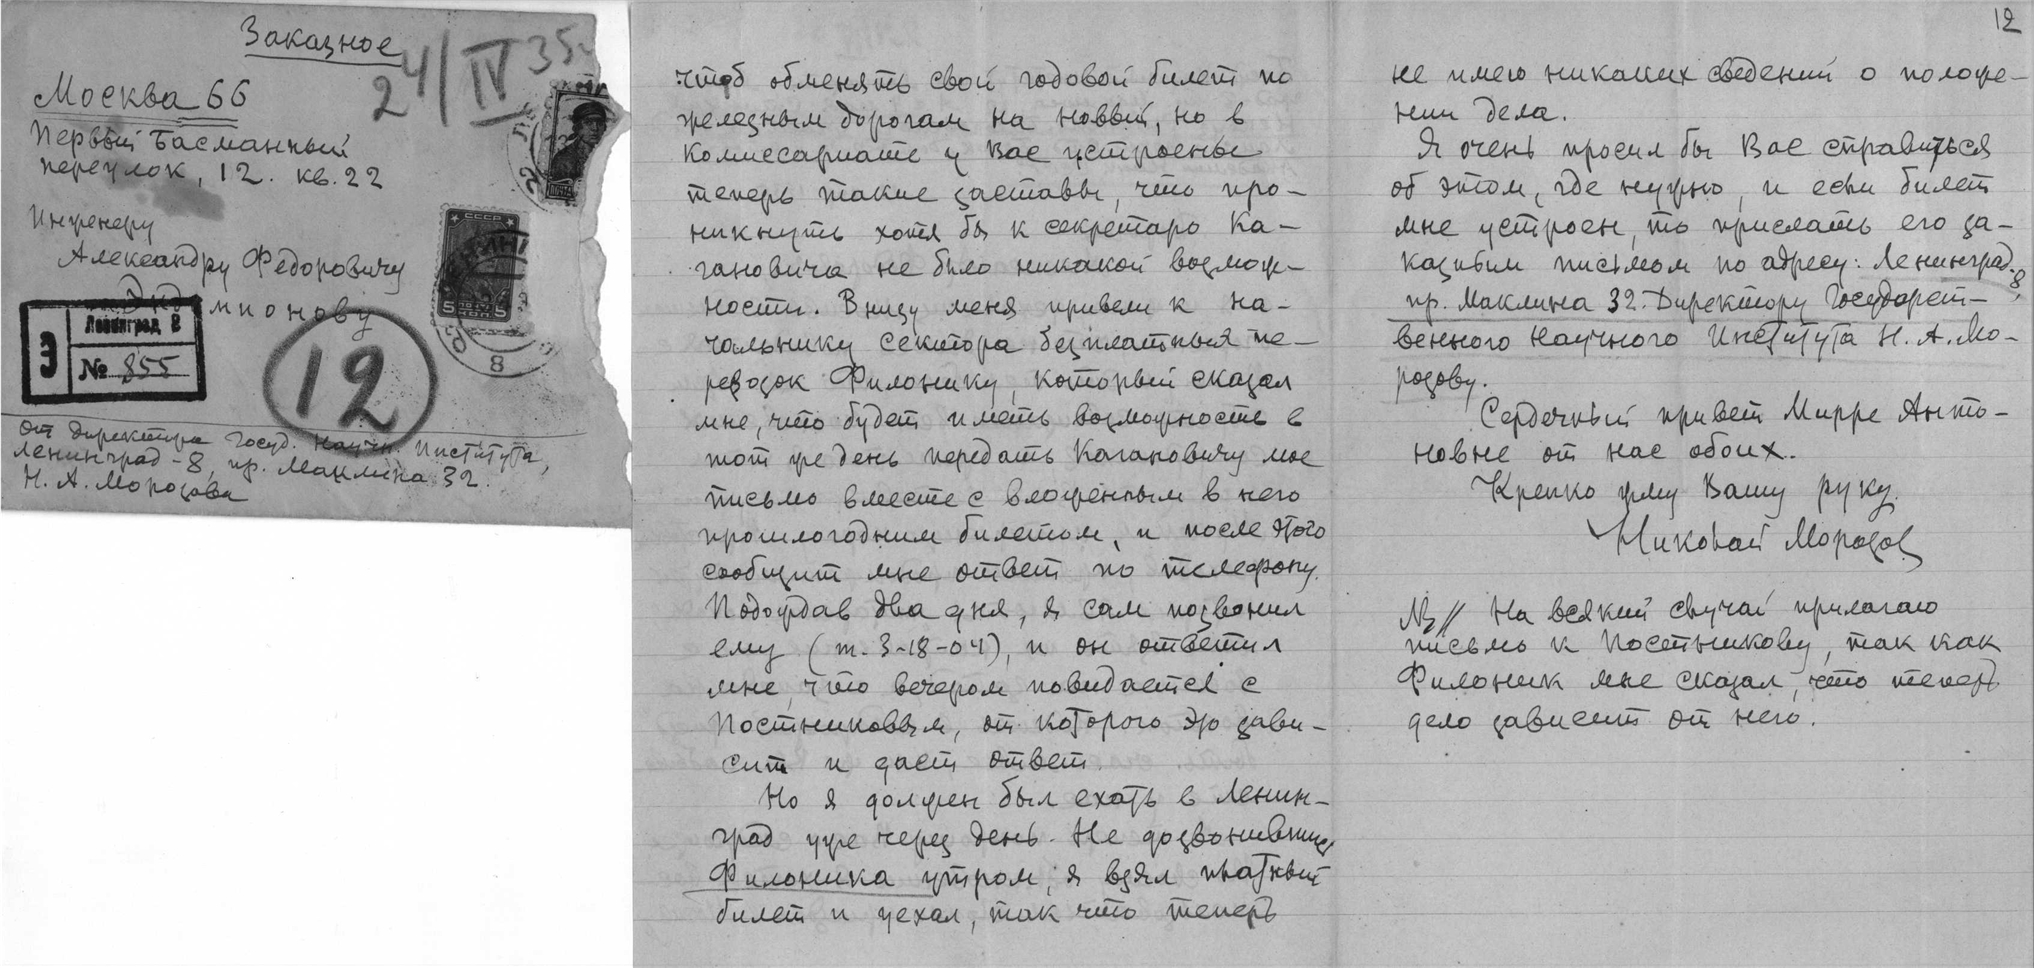 Заказное
24/IV 35
Москва 66
Первый Басманный
переулок, 12. кв. 22
Инженеру
Александру Федоровичу
мионову
СССР
5 КОП. 5
8
З
Ленинград 8
№ 855
12
От директора Госуд. Научн. Института,
Ленинград-8, пр. Маклина 32.
Н. А. Морозова
чтоб обменять свой годовой билет по
железным дорогам на новый, но в
Комиссариате у Вас устроены
теперь такие заставы, что про-
никнуть хотя бы к секретарю Ка-
гановича не было никакой возмож-
ности. Внизу меня привели к на-
чальнику сектора бесплатных пе-
ревозок Филонику, который сказал
мне, что будет иметь возможность в
тот же день передать Кагановичу мое
письмо вместе с вложенным в него
прошлогодним билетом, и после этого
сообщит мне ответ по телефону.
Подождав два дня, я сам позвонил
ему (т. 3-18-04), и он ответил
мне, что вечером повидается с
Постниковым, от которого это зави-
сит и даст ответ.
Но я должен был ехать в Ленин-
град уже через день. Не дозвонившись
Филоника утром, я взял платный
билет и уехал, так что теперь
12
не имею никаких сведений о положе-
нии дела.
Я очень просил бы Вас справиться
об этом, где нужно, и если билет
мне устроен, то прислать его за-
казным письмом по адресу: Ленинград 8,
пр. Маклина 32. Директору Государст-
венного Научного Института Н. А. Мо-
розову.
Сердечный привет Мирре Анто-
новне от нас обоих.
Крепко жму Вашу руку.
Николай Морозов
NB// На всякий случай прилагаю
письмо к Постникову, так как
Филоник мне сказал, что теперь
дело зависит от него.